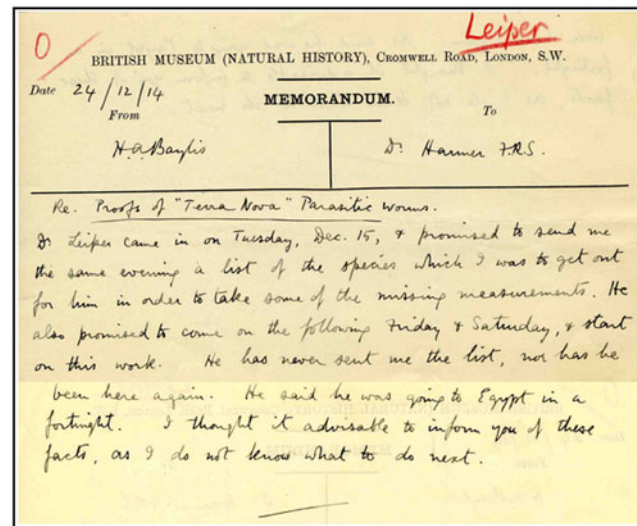 O/
Leiper
BRITISH MUSEUM (NATURAL HISTORY), CROMWELL ROAD, LONDON, S.W.
Date 24/12/14
MEMORANDUM.
From
To
H.A. Baylis
Dr. Harmer F.R.S.
Re. Proofs of "Terra Nova" Parasitic Worms.
Dr. Leiper came in on Tuesday, Dec. 15, & promised to send me
the same evening a list of the species which I was to get out
for him in order to take some of the missing measurements. He
also promised to come on the following Friday & Saturday, & start
on this work. He has never sent me the list, nor has he
been here again. He said he was going to Egypt in a
fortnight. I thought it advisable to inform you of these
facts, as I do not know what to do next.